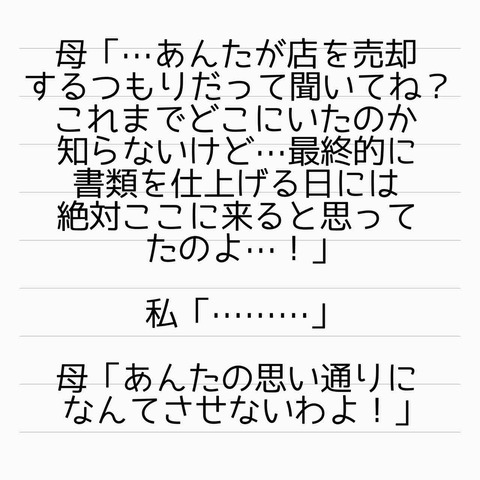 母「…あんたが店を売却
するつもりだって聞いてね？
これまでどこにいたのか
知らないけど…最終的に
書類を仕上げる日には
絶対ここに来ると思って
たのよ…！」
私「………」
母「あんたの思い通りに
なんてさせないわよ！」